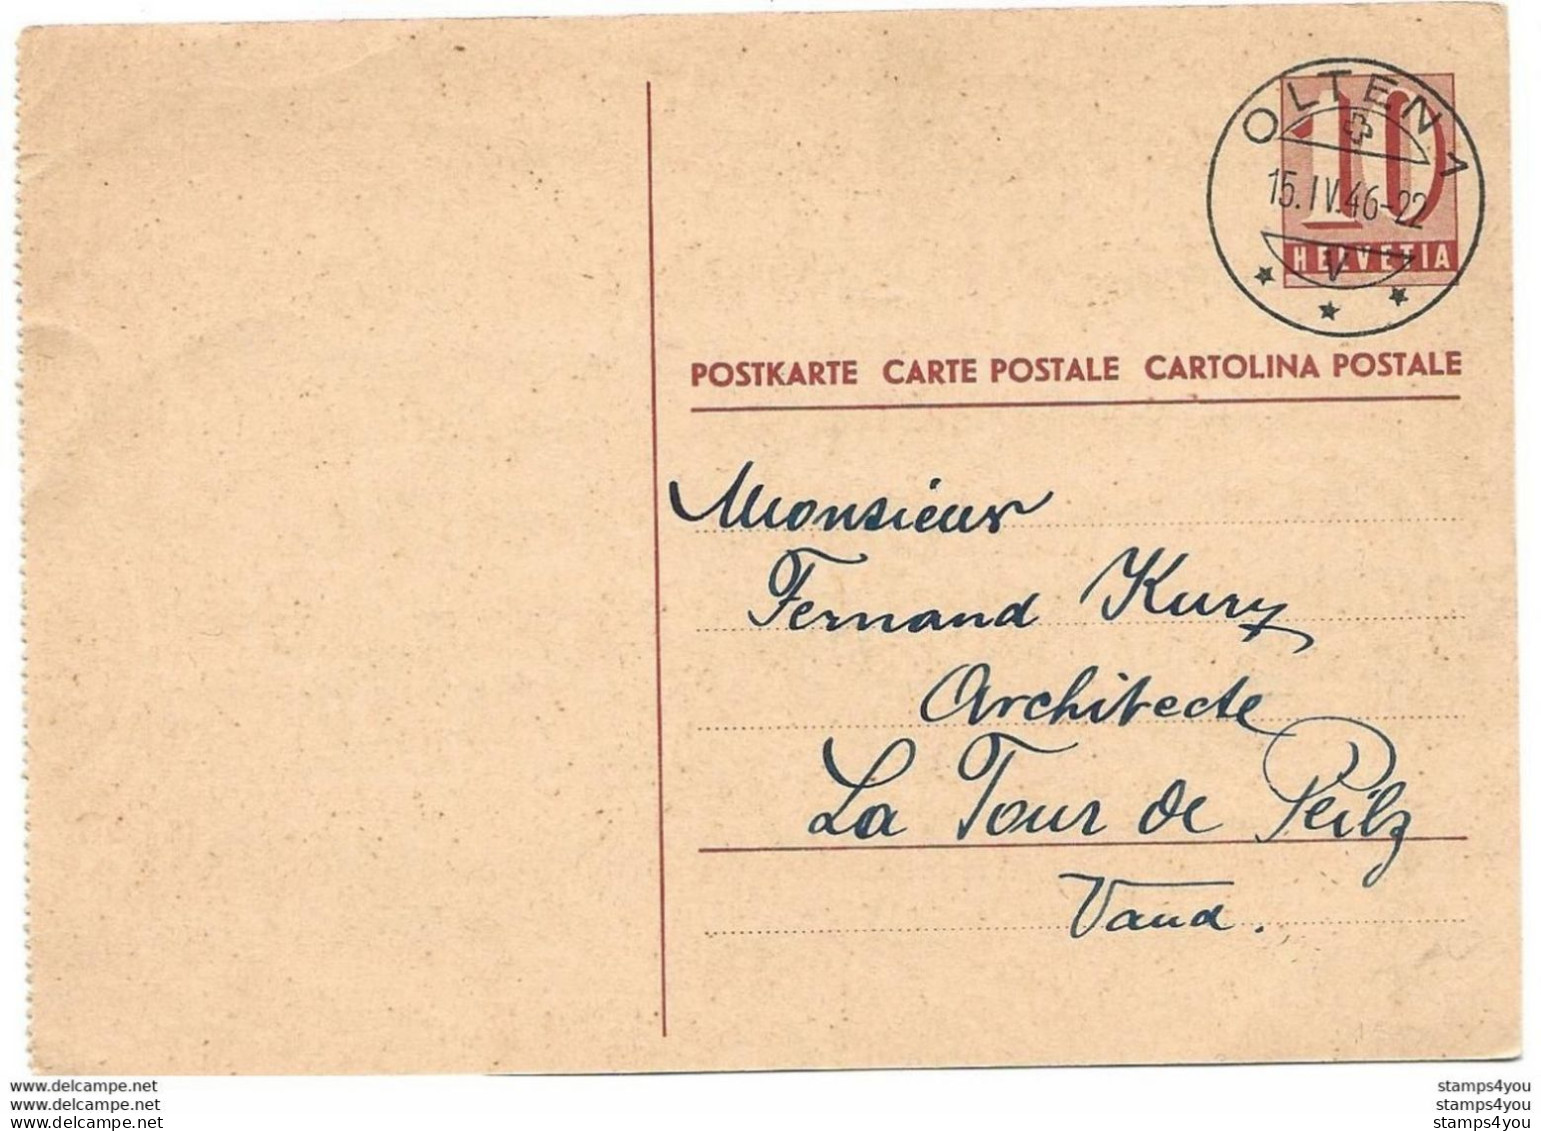 OLTEN 1
10
15.IV.46-22
HELVETIA
V
POSTKARTE CARTE POSTALE CARTOLINA POSTALE
Monsieur
Fernand Kury
Architecte
La Tour de Peilz
Vaud.
www.delcampe.net
www.delcampe.net
www.delcampe.net
stamps4you
stamps4you
stamps4you